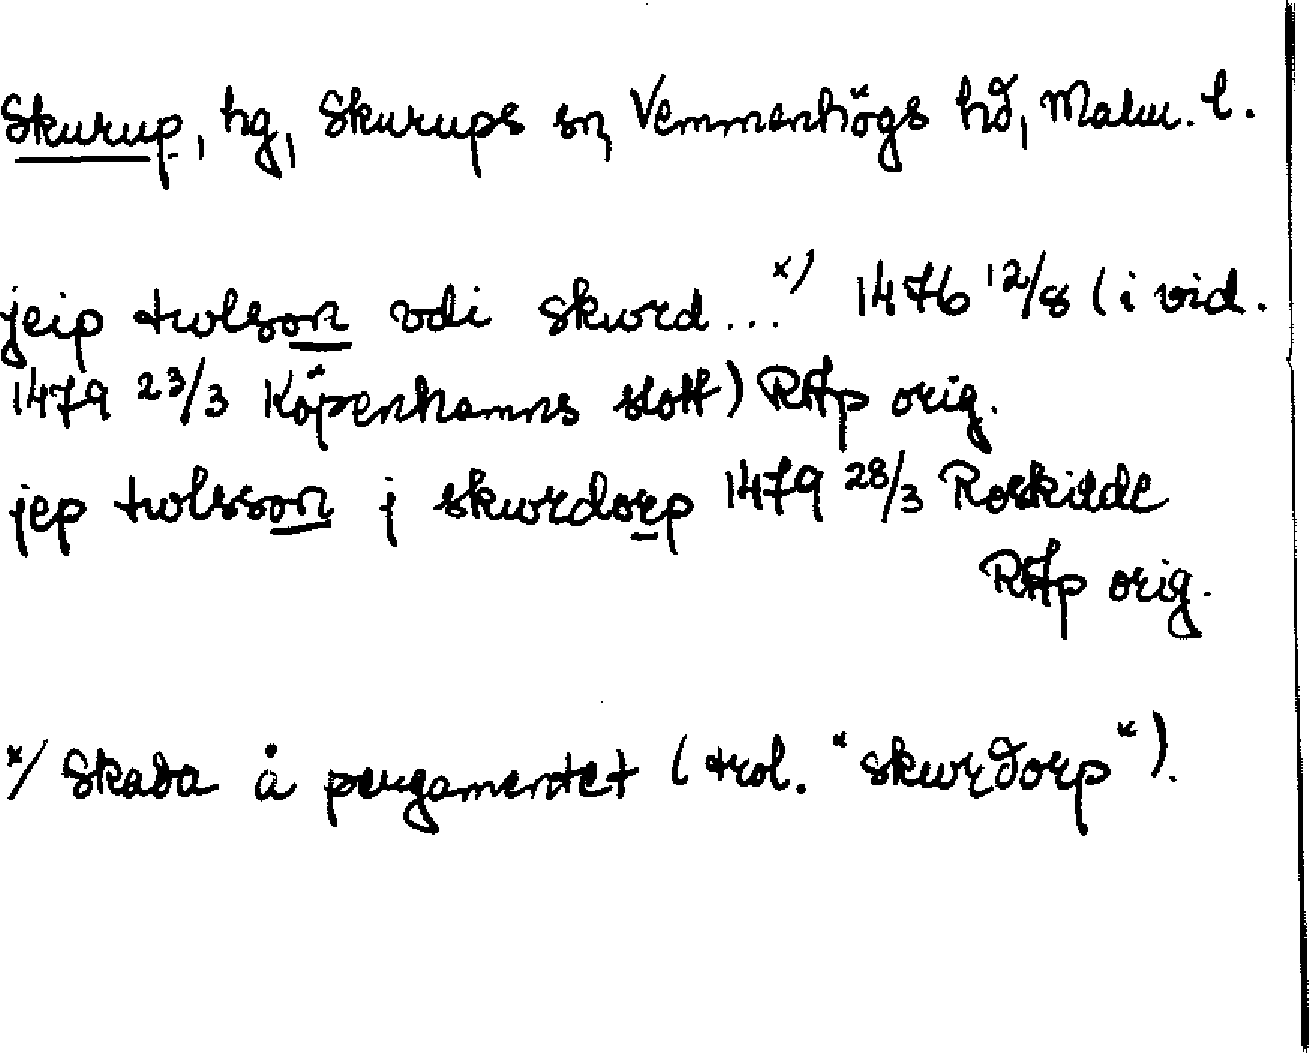 Skurup, hg, Skurups sn, Vemmenhögs hd, Malm. l.
jeip trolsson vdi skurd...x) 1476 12/8 (i vid.
1479 23/3 Köpenhamns slott) RAp orig.
jep trolsson j skurdorp 1479 28/3 Roskilde
RAp orig.
x/ Skada å pergamentet (trol. "skurdorp").